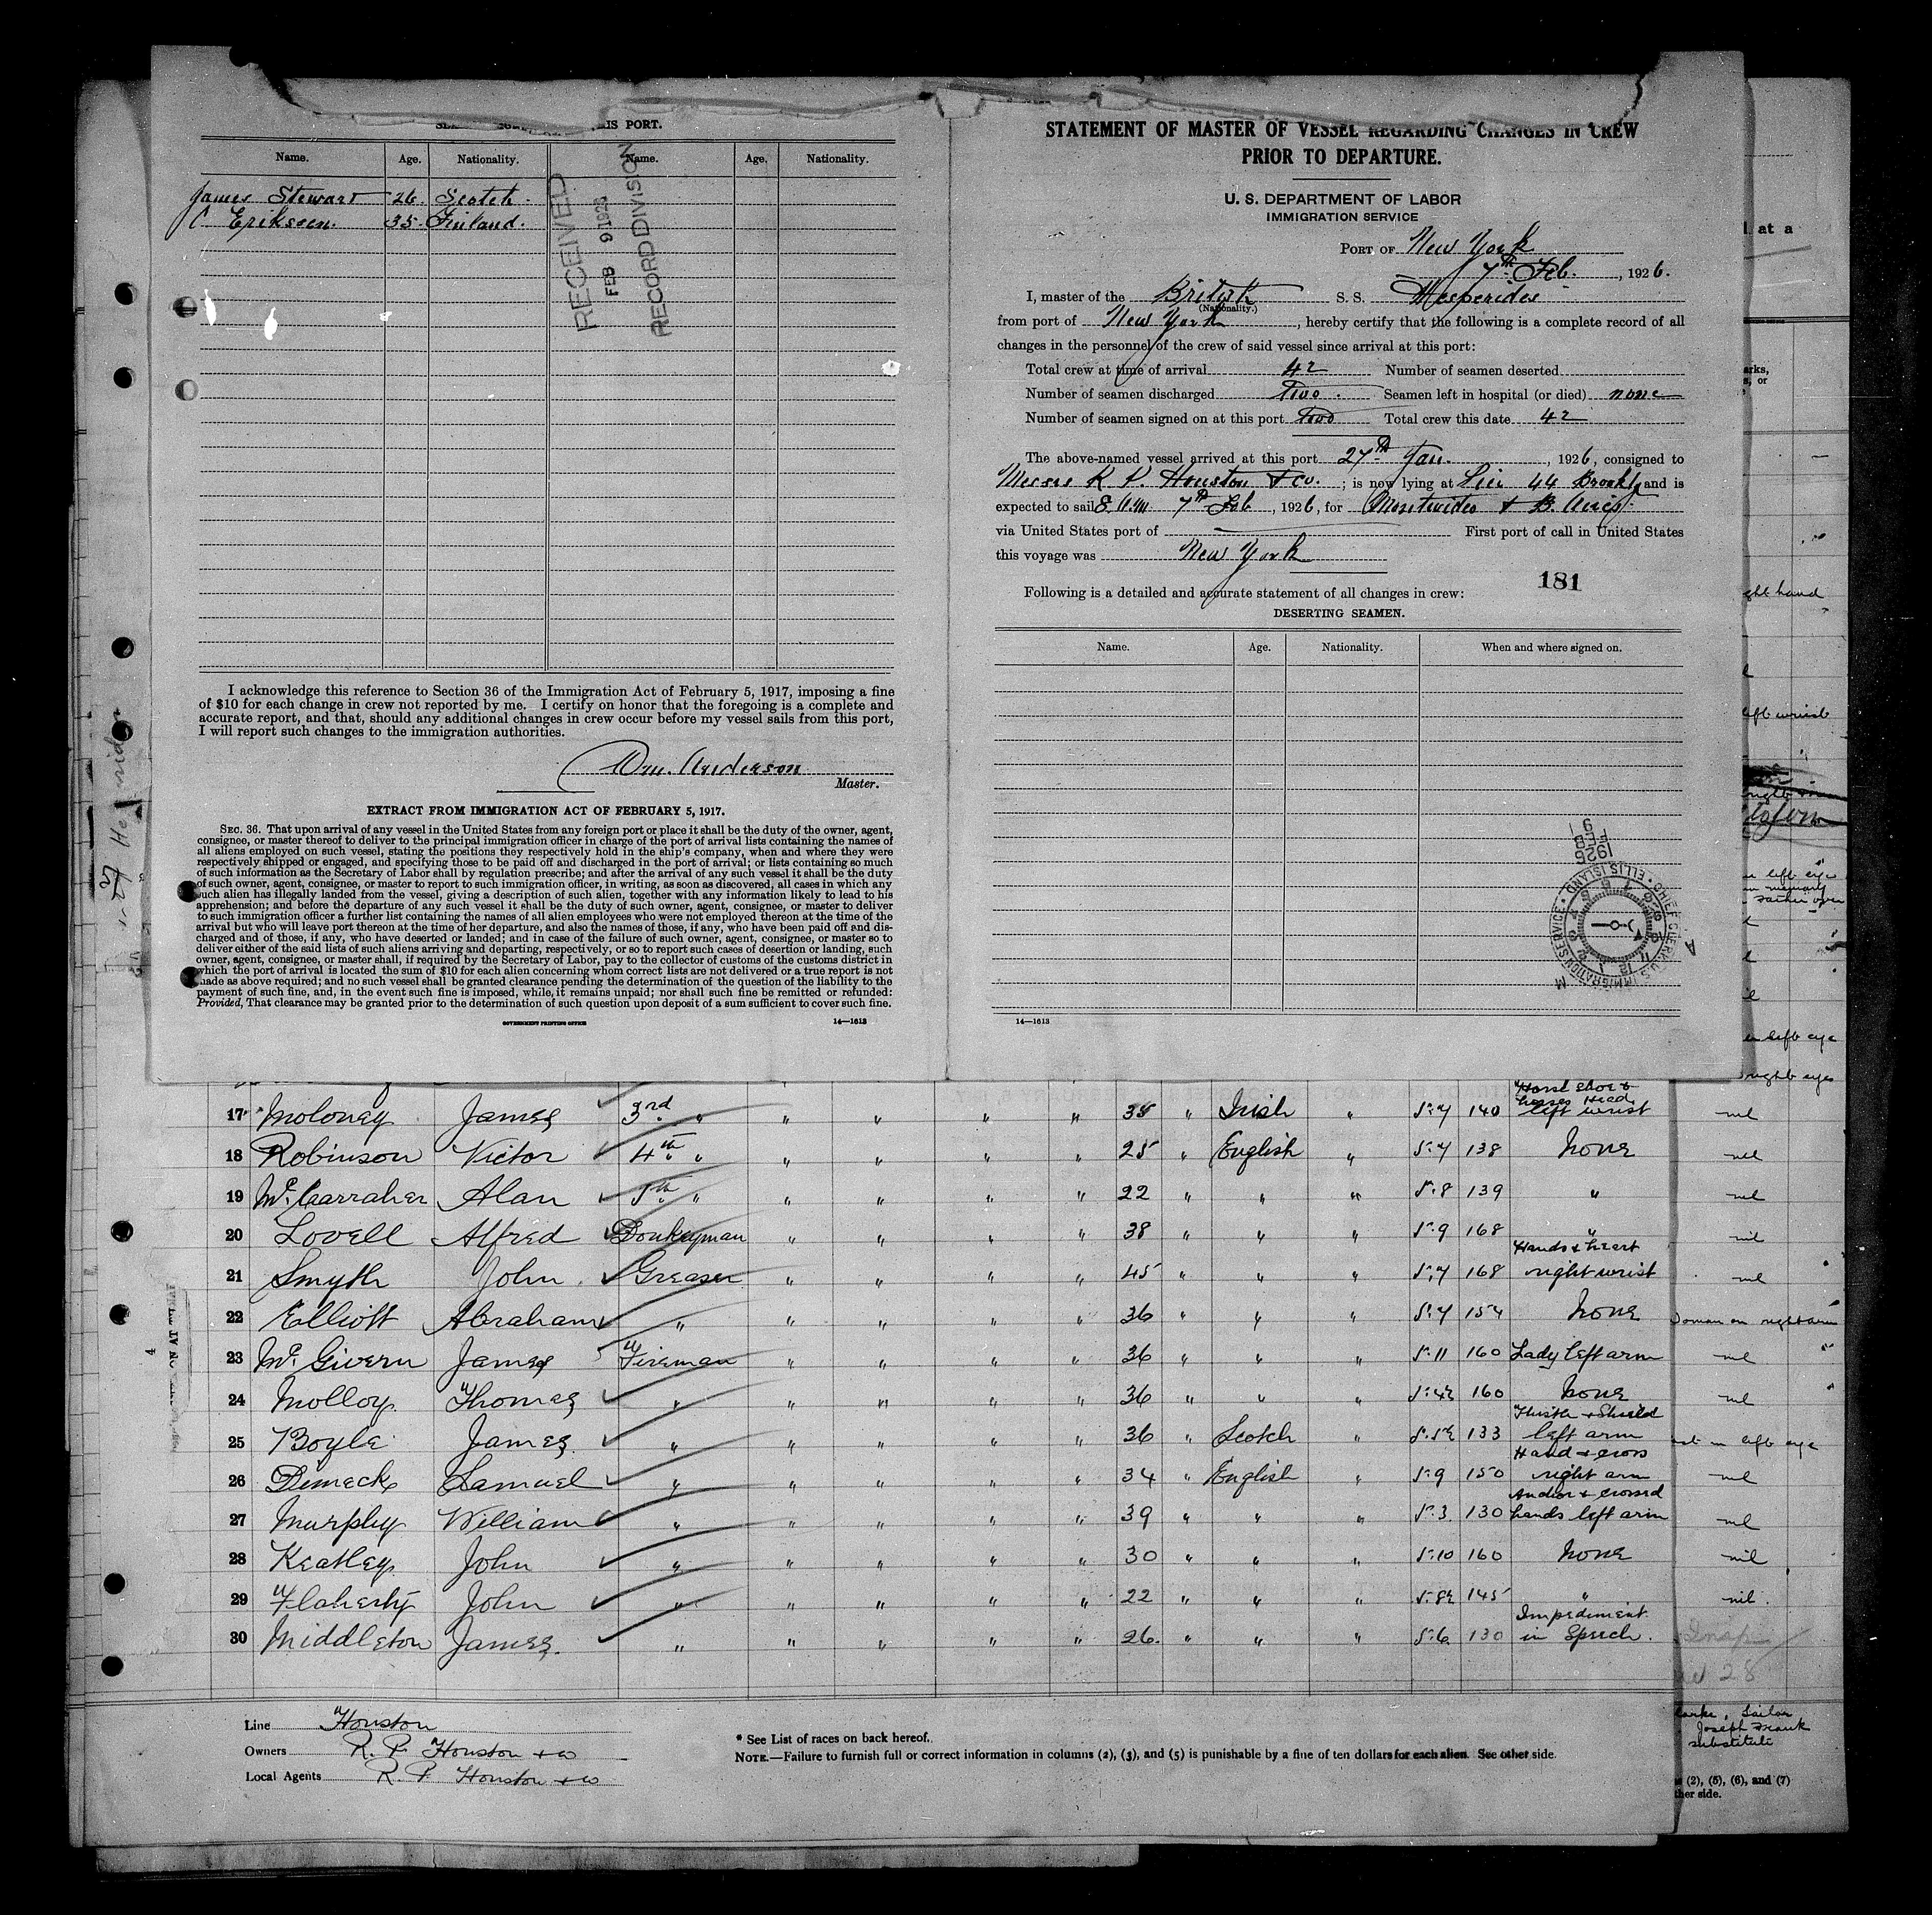 IS PORT.
Name. Age. Nationality. Name. Age. Nationality.
James Stewart 26 Scotch.
C Eriksson. 35. Finland.
RECEIVED
FEB 9 1926
RECORD DIVISION
I acknowledge this reference to Section 36 of the Immigration Act of February 5, 1917, imposing a fine
of $10 for each change in crew not reported by me. I certify on honor that the foregoing is a complete and
accurate report, and that, should any additional changes in crew occur before my vessel sails from this port,
I will report such changes to the immigration authorities.
Wm. Anderson
Master.
EXTRACT FROM IMMIGRATION ACT OF FEBRUARY 5, 1917.
SEC. 36. That upon arrival of any vessel in the United States from any foreign port or place it shall be the duty of the owner, agent,
consignee, or master thereof to deliver to the principal immigration officer in charge of the port of arrival lists containing the names of
all aliens employed on such vessel, stating the positions they respectively hold in the ship's company, when and where they were
respectively shipped or engaged, and specifying those to be paid off and discharged in the port of arrival; or lists containing so much
of such information as the Secretary of Labor shall by regulation prescribe; and after the arrival of any such vessel it shall be the duty
of such owner, agent, consignee, or master to report to such immigration officer, in writing, as soon as discovered, all cases in which any
such alien has illegally landed from the vessel, giving a description of such alien, together with any information likely to lead to his
apprehension; and before the departure of any such vessel it shall be the duty of such owner, agent, consignee, or master to deliver
to such immigration officer a further list containing the names of all alien employees who were not employed thereon at the time of the
arrival but who will leave port thereon at the time of her departure, and also the names of those, if any, who have been paid off and dis-
charged and of those, if any, who have deserted or landed; and in case of the failure of such owner, agent, consignee, or master so to
deliver either of the said lists of such aliens arriving and departing, respectively, or so to report such cases of desertion or landing, such
owner, agent, consignee, or master shall, if required by the Secretary of Labor, pay to the collector of customs of the customs district in
which the port of arrival is located the sum of $10 for each alien concerning whom correct lists are not delivered or a true report is not
made as above required; and no such vessel shall be granted clearance pending the determination of the question of the liability to the
payment of such fine, and, in the event such fine is imposed, while it remains unpaid; nor shall such fine be remitted or refunded:
Provided, That clearance may be granted prior to the determination of such question upon deposit of a sum sufficient to cover such fine.
GOVERNMENT PRINTING OFFICE 14—1613
STATEMENT OF MASTER OF VESSEL REGARDING CHANGES IN CREW
PRIOR TO DEPARTURE.
U. S. DEPARTMENT OF LABOR
IMMIGRATION SERVICE
PORT OF New York
7th Feb. , 1926.
I, master of the British S. S. Hesperides
(Nationality.)
from port of New York , hereby certify that the following is a complete record of all
changes in the personnel of the crew of said vessel since arrival at this port:
Total crew at time of arrival 42 Number of seamen deserted
Number of seamen discharged Two . Seamen left in hospital (or died) none
Number of seamen signed on at this port two Total crew this date 42
The above-named vessel arrived at this port 27th Jan. , 1926, consigned to
Messrs R. P. Houston & Co. ; is now lying at Pier 44 Brookly and is
expected to sail 8 A.M. 7th Feb , 1926, for Montevideo & B. Aires.
via United States port of First port of call in United States
this voyage was New York
181
Following is a detailed and accurate statement of all changes in crew:
DESERTING SEAMEN.
Name. Age. Nationality. When and where signed on.
1926 FEB 9
CHIEF CLERK U.S. IMMIGRATION SERVICE • ELLIS ISLAND •
14—1613
17 Moloney James 3rd " " " " " 38 " Irish " 5.7 140 Horse shoe & horses Head left wrist nil
18 Robinson Victor 4th " " " " " 25 " English " 5.7 138 None nil
19 McCarraher Alan 5th " " " " " 22 " " " 5.8 139 " nil
20 Lovell Alfred Donkeyman " " " " 38 " " " 5.9 168 " nil
21 Smyth John Greaser " " " " 45 " " " 5.7 168 Hands & heart right wrist nil
22 Elliott Abraham " " " " " 36 " " " 5.7 154 None
23 McGivern James Fireman " " " " 36 " " " 5.11 160 Lady left arm nil
24 Molloy Thomas " " " " " 36 " " " 5.4½ 160 None nil
25 Boyle James " " " " " 36 " Scotch " 5.5½ 133 Thistle & Shield left arm
26 Dimeck Samuel " " " " " 34 " English " 5.9 150 Hand & cross right arm nil
27 Murphy William " " " " " 39 " " " 5.3 130 Anchor & crossed hands left arm nil
28 Keatley John " " " " " 30 " " " 5.10 160 None nil
29 Flaherty John " " " " " 22 " " " 5.8½ 145 " nil
30 Middleton James " " " " " 26 " " " 5.6 130 Impediment in Speech.
Line Houston
Owners R. P. Houston & co
Local Agents R. P. Houston & co
* See List of races on back hereof.
NOTE.—Failure to furnish full or correct information in columns (2), (3), and (5) is punishable by a fine of ten dollars for each alien. See other side.
at a
arks,
ght hand
left wrist
left eye
in memory
left eye
right eye
woman on right arm
left eye
28
Sailor
Joseph Frank
substitute
(2), (5), (6), and (7)
her side.